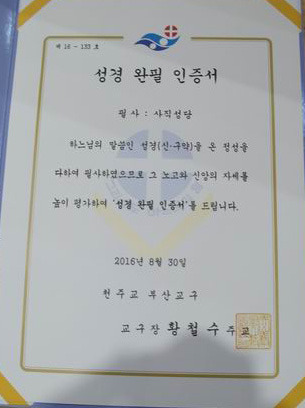 제 16 - 133 호
성경 완필 인증서
필사 : 사직성당
하느님의 말씀인 성경(신·구약)을 온 정성을
다하여 필사하였으므로 그 노고와 신앙의 자세를
높이 평가하여 '성경 완필 인증서'를 드립니다.
2016년 8월 30일
천주교 부산교구
교구장 황철수 주교